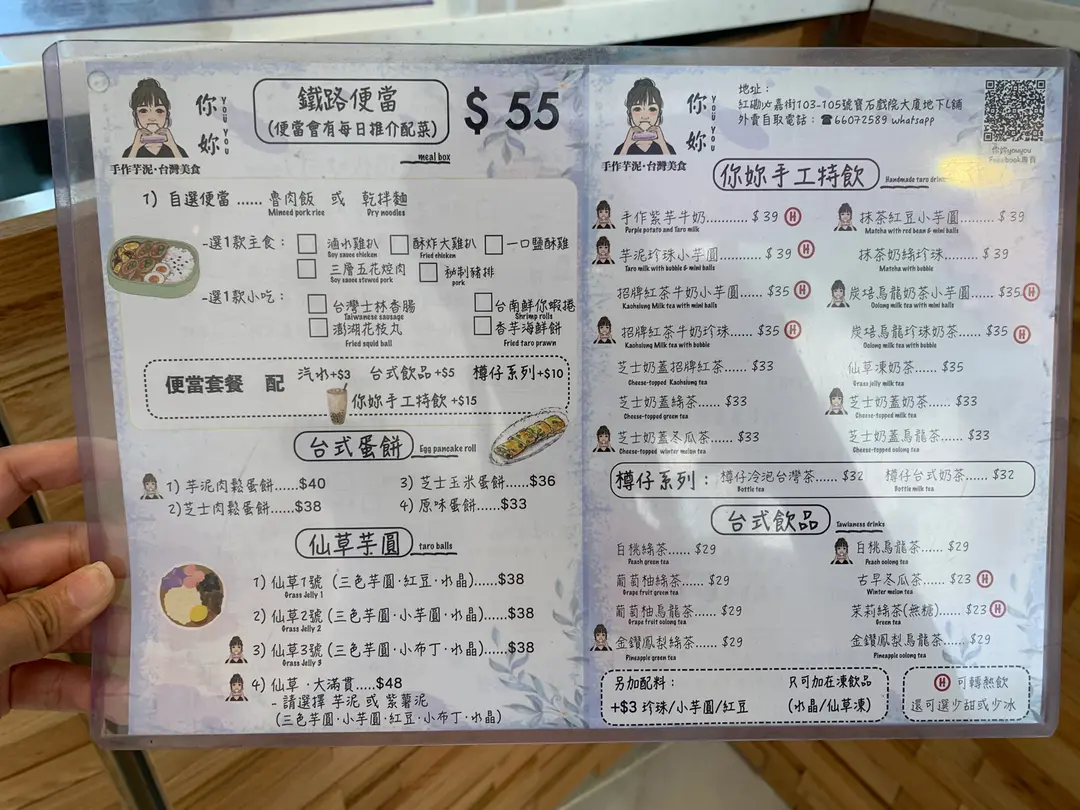 你妳
YOU YOU
手作芋泥·台灣美食
鐵路便當
(便當會有每日推介配菜)
$ 55
meal box
1) 自選便當 ...... 魯肉飯 或 乾拌麵
Minced pork rice Dry noodles
-選1款主食： 滷水雞扒 酥炸大雞扒 一口鹽酥雞
Soy sauce chicken Fried chicken
三層五花焢肉 秘制豬排
Soy sauce stewed pork pork
-選1款小吃： 台灣士林香腸 台南鮮你蝦捲
Taiwanese sausage Shrimp rolls
澎湖花枝丸 香芋海鮮餅
Fried squid ball Fried taro prawn
便當套餐 配 汽水+$3 台式飲品+$5 樽仔系列+$10
你妳手工特飲 +$15
台式蛋餅
Egg pancake roll
1) 芋泥肉鬆蛋餅......$40 3) 芝士玉米蛋餅......$36
2)芝士肉鬆蛋餅......$38 4) 原味蛋餅......$33
仙草芋圓
taro balls
1) 仙草1號 (三色芋圓·紅豆·水晶)......$38
Grass Jelly 1
2) 仙草2號 (三色芋圓·小芋圓·水晶)......$38
Grass Jelly 2
3) 仙草3號 (三色芋圓·小布丁·水晶)......$38
Grass Jelly 3
4) 仙草 ·大滿貫.....$48
- 請選擇 芋泥 或 紫薯泥
(三色芋圓·小芋圓·紅豆·小布丁·水晶)
你妳
YOU YOU
手作芋泥·台灣美食
地址：
紅磡必嘉街103-105號寶石戲院大廈地下L舖
外賣自取電話：☎66072589 whatsapp
你妳youyou
Facebook專頁
你妳手工特飲
Handmade taro drink
手作紫芋牛奶.......... $ 39 H 抹茶紅豆小芋圓........ $ 39
Purple potato and Taro milk Matcha with red bean & mini balls
芋泥珍珠小芋圓........ $ 39 H 抹茶奶綠珍珠........ $ 39
Taro milk with bobble & mini balls Matcha with bobble
招牌紅茶牛奶小芋圓......$35 H 炭培烏龍奶茶小芋圓......$35 H
Kaohsiung Milk tea with bobble Oolong milk tea with mini balls
招牌紅茶牛奶珍珠...... $35 H 炭培烏龍珍珠奶茶...... $35 H
Kaohsiung Milk tea with bobble Oolong milk tea with bobble
芝士奶蓋招牌紅茶...... $33 仙草凍奶茶...... $35
Cheese-topped Kaohsiung tea Grass jelly milk tea
芝士奶蓋綠茶...... $33 芝士奶蓋奶茶...... $33
Cheese-topped green tea Cheese-topped milk tea
芝士奶蓋冬瓜茶...... $33 芝士奶蓋烏龍茶...... $33
Cheese-topped winter melon tea Cheese-topped oolong tea
樽仔系列： 樽仔冷泡台灣茶...... $32 樽仔台式奶茶...... $32
Bottle tea Bottle milk tea
台式飲品
Tawianese drinks
白桃綠茶...... $29 白桃烏龍茶...... $29
Peach green tea Peach oolong tea
葡萄柚綠茶...... $29 古早冬瓜茶...... $23 H
Grape fruit green tea Winter melon tea
葡萄柚烏龍茶...... $29 茉莉綠茶(無糖)...... $23 H
Grape fruit oolong tea Green tea
金鑽鳳梨綠茶...... $29 金鑽鳳梨烏龍茶...... $29
Pineapple green tea Pineapple oolong tea
另加配料： 只可加在凍飲品
+$3 珍珠/小芋圓/紅豆 (水晶/仙草凍)
H 可轉熱飲
還可選少甜或少冰